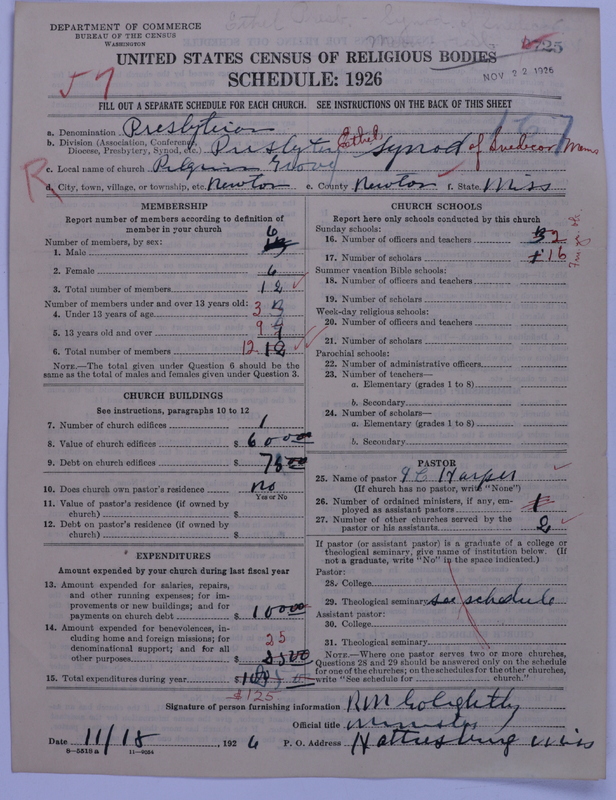 DEPARTMENT OF COMMERCE
BUREAU OF THE CENSUS
WASHINGTON
UNITED STATES CENSUS OF RELIGIOUS BODIES
SCHEDULE: 1926
NOV 22 1926
57
FILL OUT A SEPARATE SCHEDULE FOR EACH CHURCH. SEE INSTRUCTIONS ON THE BACK OF THIS SHEET
167
a. Denomination Presbyterian
b. Division (Association, Conference, Diocese, Presbytery, Synod, etc.) Presbytery Ethel Synod of
c. Local name of church Pilgrim Grove
R
d. City, town, village, or township, etc. Newton e. County Newton f. State Miss
MEMBERSHIP
Report number of members according to definition of
member in your church
Number of members, by sex:
1. Male 6
2. Female 6
3. Total number of members 12
Number of members under and over 13 years old:
4. Under 13 years of age 3 3
5. 13 years old and over 9 9
6. Total number of members 12 12
NOTE.—The total given under Question 6 should be the
same as the total of males and females given under Question 3.
CHURCH BUILDINGS
See instructions, paragraphs 10 to 12
7. Number of church edifices 1
8. Value of church edifices $ 600 00
9. Debt on church edifices $ 75 00
10. Does church own pastor's residence No
Yes or No
11. Value of pastor's residence (if owned by
church) $
12. Debt on pastor's residence (if owned by
church) $
EXPENDITURES
Amount expended by your church during last fiscal year
13. Amount expended for salaries, repairs,
and other running expenses; for im-
provements or new buildings; and for
payments on church debt $ 100 00
14. Amount expended for benevolences, in-
cluding home and foreign missions; for
denominational support; and for all
other purposes $ 25 00
25
15. Total expenditures during year $
$125
CHURCH SCHOOLS
Report here only schools conducted by this church
Sunday schools:
16. Number of officers and teachers 2
17. Number of scholars 16
Summer vacation Bible schools:
18. Number of officers and teachers
19. Number of scholars
Week-day religious schools:
20. Number of officers and teachers
21. Number of scholars
Parochial schools:
22. Number of administrative officers
23. Number of teachers—
a. Elementary (grades 1 to 8)
b. Secondary
24. Number of scholars—
a. Elementary (grades 1 to 8)
b. Secondary
PASTOR
25. Name of pastor Harper
(If church has no pastor, write "None")
26. Number of ordained ministers, if any, em-
ployed as assistant pastors 1
27. Number of other churches served by the
pastor or his assistants 2
If pastor (or assistant pastor) is a graduate of a college or
theological seminary, give name of institution below. (If
not a graduate, write "No" in the space indicated.)
Pastor:
28. College
29. Theological seminary see schedule
Assistant pastor:
30. College
31. Theological seminary
NOTE.—Where one pastor serves two or more churches,
Questions 28 and 29 should be answered only on the schedule
for one of the churches; on the schedules for the other churches,
write "See schedule for ........ church."
Signature of person furnishing information R M Golightly
Official title Minister
Date 11/18 1926 P. O. Address Hattiesburg Miss
8-5519a 11-9084